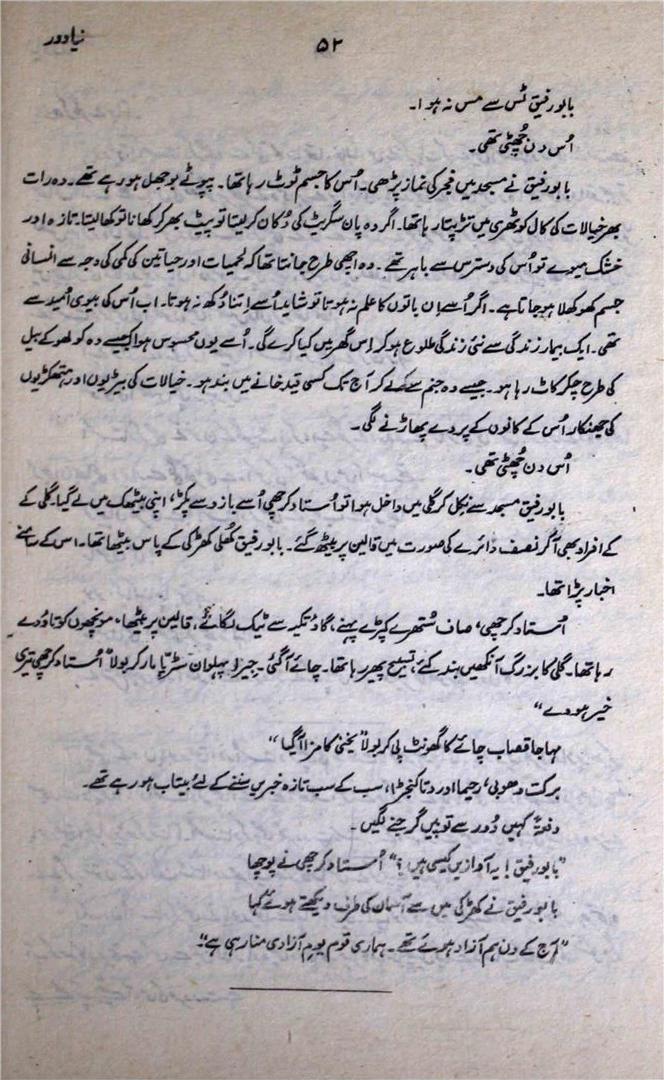 نیا دور
۵۲
بابو رفیق ٹس سے مس نہ ہوا۔
اُس دن چھٹی تھی۔
بابو رفیق نے مسجد میں فجر کی نماز پڑھی۔ اُس کا جسم ٹوٹ رہا تھا۔ پپوٹے بوجھل ہو رہے تھے۔ وہ رات
بھر خیالات کی کال کوٹھری میں تڑپتا رہا تھا۔ اگر وہ پان سگریٹ کی دُکان کر لیتا تو پیٹ بھر کر کھانا تو کھا لیتا۔ تازہ اور
خشک میوے تو اُس کی دسترس سے باہر تھے۔ وہ اچھی طرح جانتا تھا کہ لحمیات اور حیاتین کی کمی کی وجہ سے انسانی
جسم کھوکھلا ہو جاتا ہے۔ اگر اُسے اِن باتوں کا علم نہ ہوتا تو شاید اُسے اِتنا دُکھ نہ ہوتا۔ اب اُس کی بیوی اُمید سے
تھی۔ ایک بیمار زندگی سے نئی زندگی طلوع ہو کر اِس گھر میں کیا کرے گی۔ اُسے یوں محسوس ہوا کہ جیسے وہ کولھو کے بیل
کی طرح چکر کاٹ رہا ہو۔ جیسے وہ جنم سے لے کر آج تک کسی قید خانے میں بند ہو۔ خیالات کی بیڑیوں اور ہتھکڑیوں
کی جھنکار اُس کے کانوں کے پردے پھاڑنے لگی۔
اُس دن چھٹی تھی۔
بابو رفیق مسجد سے نکل کر گلی میں داخل ہوا تو اُستاد کرچھی اُسے بازو سے پکڑ، اپنی بیٹھک میں لے گیا۔ گلی کے
کے افراد بھی آ کر نصف دائرے کی صورت میں قالین پر بیٹھ گئے۔ بابو رفیق کھُلی کھڑکی کے پاس بیٹھا تھا۔ اس کے سامنے
اخبار پڑا تھا۔
اُستاد کرچھی، صاف سُتھرے کپڑے پہنے، گاؤ تکیہ سے ٹیک لگائے، قالین پر بیٹھا، مونچھوں کو تاؤ دے
رہا تھا۔ گلی کا بزرگ آنکھیں بند کئے، تسبیح پھیر رہا تھا۔ چائے آ گئی۔ جیرا پہلوان سڑپا مار کر بولا "اُستاد کرچھی تیری
خیر ہووے"
مہاجا قصاب چائے کا گھونٹ پی کر بولا "یخنی کا مزا آ گیا"
برکت دھوبی، رحیما اور دتا کنجڑا، سب کے سب تازہ خبریں سننے کے لئے بیتاب ہو رہے تھے۔
دفعتہً کہیں دُور سے توپیں گرجنے لگیں۔
"بابو رفیق! یہ آوازیں کیسی ہیں؟" اُستاد کرچھی نے پوچھا
بابو رفیق نے کھڑکی میں سے آسمان کی طرف دیکھتے ہوئے کہا
"آج کے دن ہم آزاد ہوئے تھے۔ ہماری قوم یومِ آزادی منا رہی ہے"۔